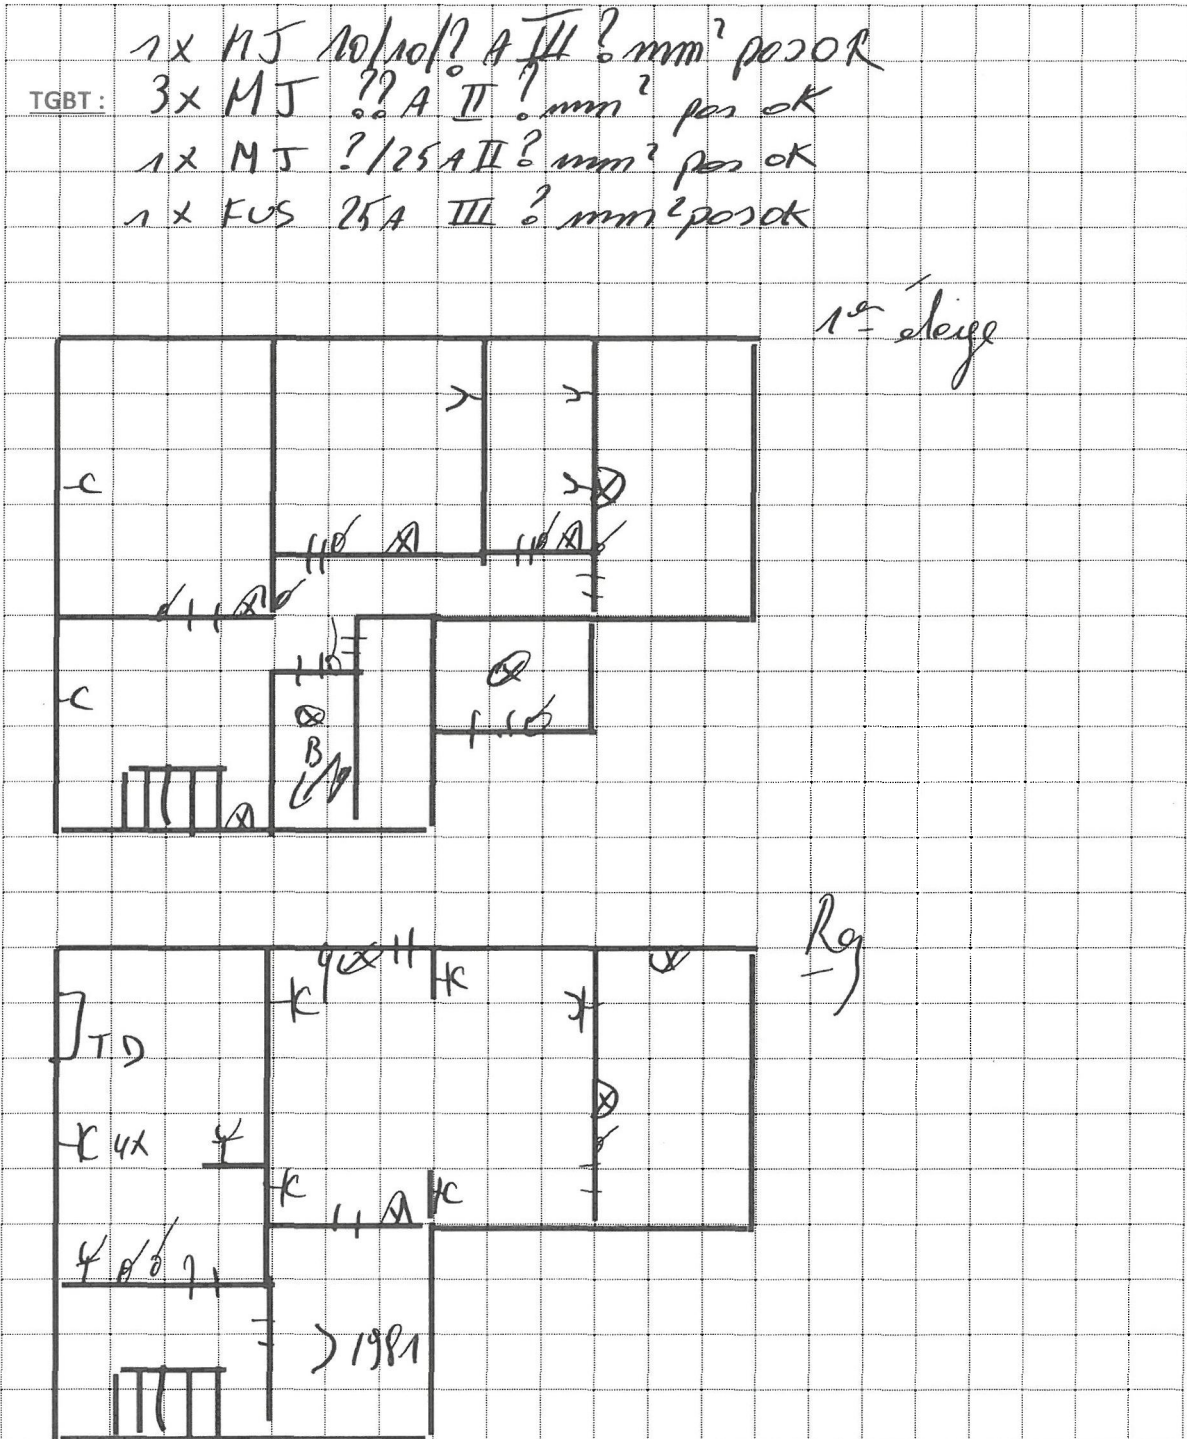 1x MJ 10/10/? A III ? mm² pas OK
TGBT : 3x MJ ?? A II ? mm² pas OK
1x MJ ?/25 A II ? mm² pas OK
1x FUS 25A III ? mm² pas ok
1er étage
C
C
B
Rg
K
K
TD
K 4x
K
K
> 1981